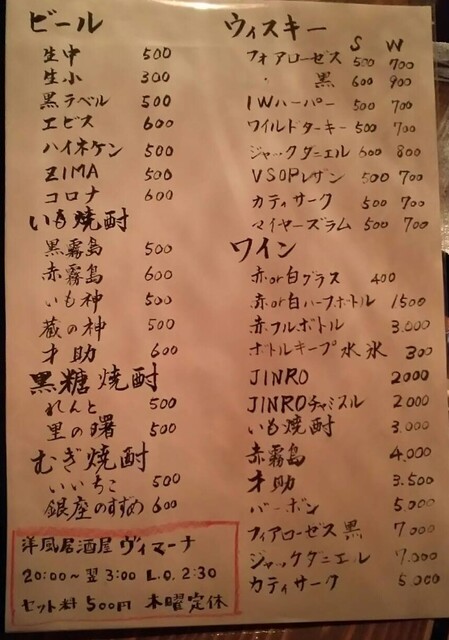 ビール
生中 500
生小 300
黒ラベル 500
エビス 600
ハイネケン 500
ZIMA 500
コロナ 600
いも焼酎
黒霧島 500
赤霧島 600
いも神 500
蔵の神 500
才助 600
黒糖焼酎
れんと 500
里の曙 500
むぎ焼酎
いいちこ 500
銀座のすずめ 600
洋風居酒屋 ヴィマーナ
20:00~翌3:00 L.O. 2:30
セット料 500円 木曜定休
ウィスキー
S W
フォアローゼス 500 700
〃 黒 600 900
IWハーパー 500 700
ワイルドターキー 500 700
ジャックダニエル 600 800
VSOPレザン 500 700
カティサーク 500 700
マイヤーズラム 500 700
ワイン
赤or白グラス 400
赤or白ハーフボトル 1500
赤フルボトル 3.000
ボトルキープ 水氷 300
JINRO 2000
JINROチャミスル 2000
いも焼酎 3.000
赤霧島 4.000
才助 3.500
バーボン 5.000
フィアローゼス黒 7000
ジャックダニエル 7.000
カティサーク 5.000